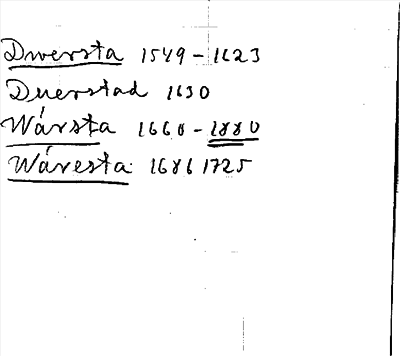 Dwersta 1549-1623
Duerstad 1630
Wársta 1660-1880
Wáresta 1686 1725